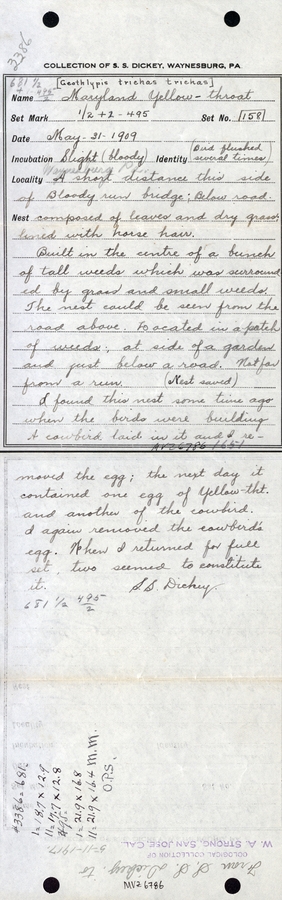 3386
COLLECTION OF S. S. DICKEY, WAYNESBURG, PA
681 1/2 + 495/2
[Geothlypis trichas trichas]
Name Maryland Yellow-throat
Set Mark 1/2 + 2 - 495 Set No. 158
Date May-31-1909
Incubation Slight (bloody) Identity (Bird flushed several times)
Locality A short distance this side
of Bloody run bridge; Below road.
Nest composed of leaves and dry grass
lined with horse hair.
Built in the centre of a bunch
of tall weeds which was surround
ed by grass and small weeds.
The nest could be seen from the
road above. Located in a patch
of weeds; at side of a garden
and just below a road. Not far
from a run. (Nest saved)
I found this nest some time ago
when the birds were building
A cowbird laid in it and I re-
moved the egg; the next day it
contained one egg of Yellow-tht.
and another of the cowbird.
I again removed the cowbird's
egg. When I returned for full
set, two seemed to constitute
it. S.S. Dickey.
681 1/2 495/2
#3386 = 681.
1 = 18.7 x 12.9
11 = 17.7 x 12.8
#495.
1 = 21.9 x 16.8
11 = 21.9 x 16.4 M.M.
O.P.S.
OOLOGICAL COLLECTION OF
W. A. STRONG, SAN JOSE, CAL.
From S. S. Dickey to
MVZ 6786